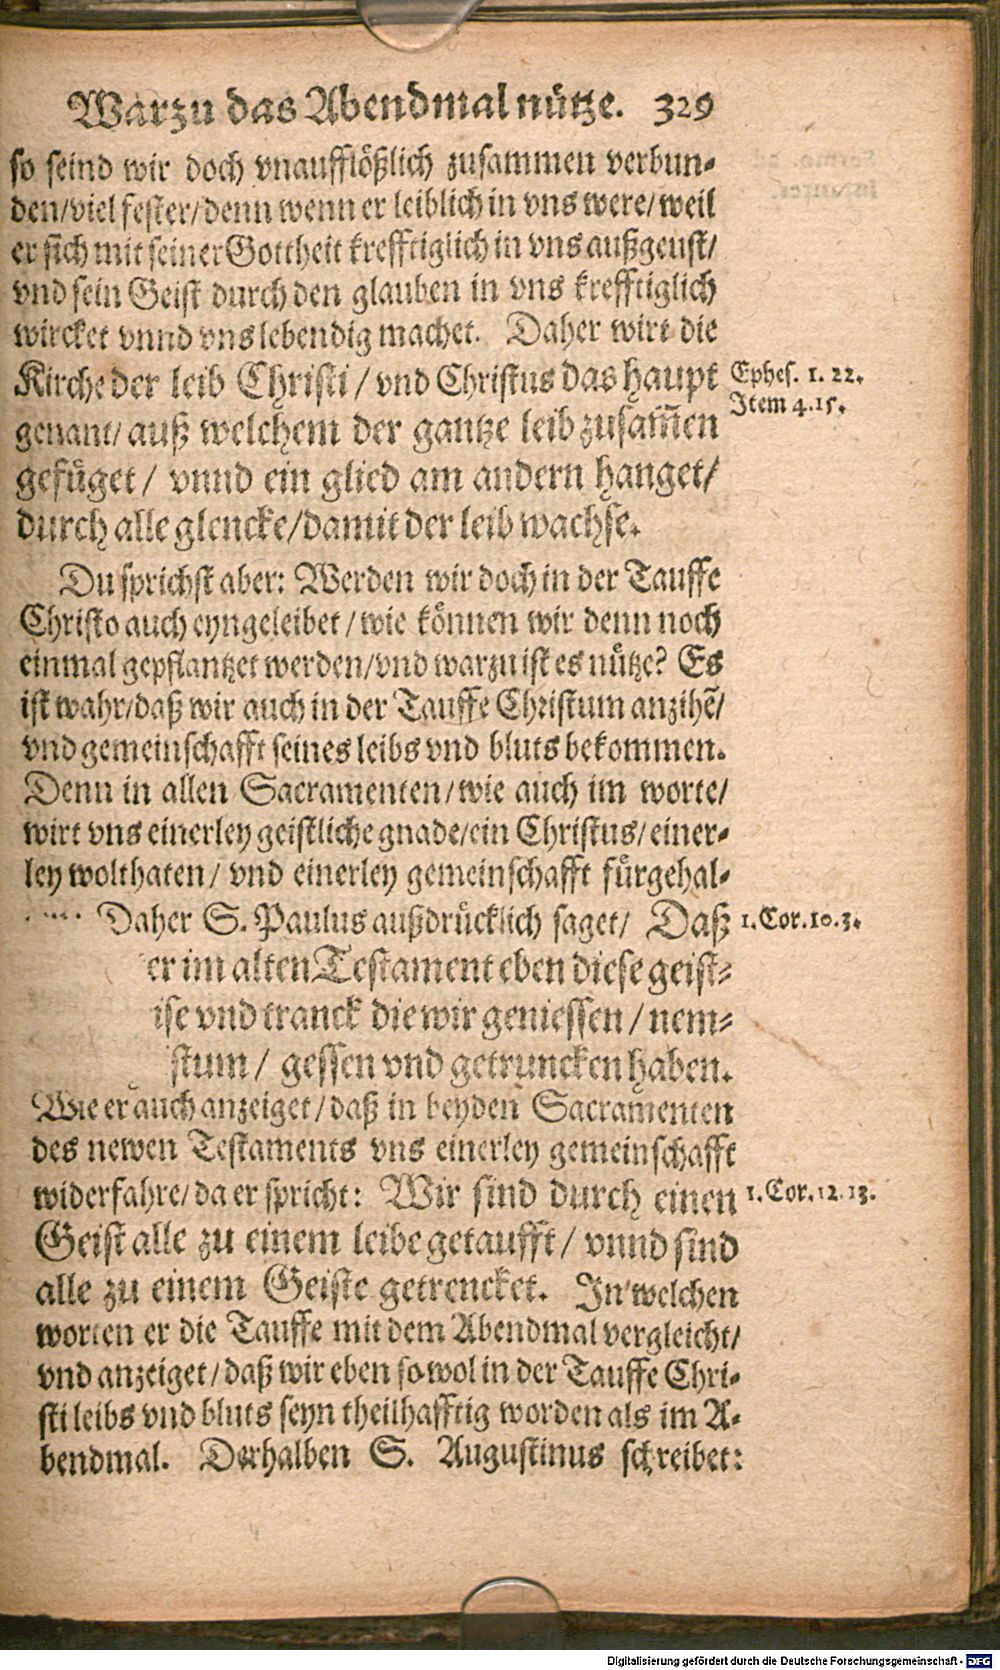 Warzu das Abendmal nütze. 329
so seind wir doch vnaufflößlich zusammen verbun-
den/viel fester/denn wenn er leiblich in vns were/weil
er sich mit seiner Gottheit krefftiglich in vns außgeust/
vnd sein Geist durch den glauben in vns krefftiglich
wircket vnnd vns lebendig machet. Daher wirt die
Kirche der leib Christi / vnd Christus das haupt
Ephes. 1. 22.
Item 4.15.
genant/ auß welchem der gantze leib zusam̃en
gefüget / vnnd ein glied am andern hanget/
durch alle glencke/damit der leib wachse.
Du sprichst aber: Werden wir doch in der Tauffe
Christo auch eyngeleibet / wie können wir denn noch
einmal gepflantzet werden/vnd warzu ist es nütze? Es
ist wahr/daß wir auch in der Tauffe Christum anzihẽ/
vnd gemeinschafft seines leibs vnd bluts bekommen.
Denn in allen Sacramenten/wie auch im worte/
wirt vns einerley geistliche gnade/ein Christus/einer-
ley wolthaten / vnd einerley gemeinschafft fürgehal-
Daher S. Paulus außdrücklich saget/ Daß
1. Cor. 10. 3.
er im alten Testament eben diese geist-
ise vnd tranck die wir geniessen / nem-
stum / gessen vnd getruncken haben.
Wie er auch anzeiget / daß in beyden Sacramenten
des newen Testaments vns einerley gemeinschafft
widerfahre/ da er spricht: Wir sind durch einen
1. Cor. 12. 13.
Geist alle zu einem leibe getaufft / vnnd sind
alle zu einem Geiste getrencket. In welchen
worten er die Tauffe mit dem Abendmal vergleicht/
vnd anzeiget / daß wir eben so wol in der Tauffe Chri-
sti leibs vnd bluts seyn theilhafftig worden als im A-
bendmal. Derhalben S. Augustinus schreibet:
Digitalisierung gefördert durch die Deutsche Forschungsgemeinschaft - DFG